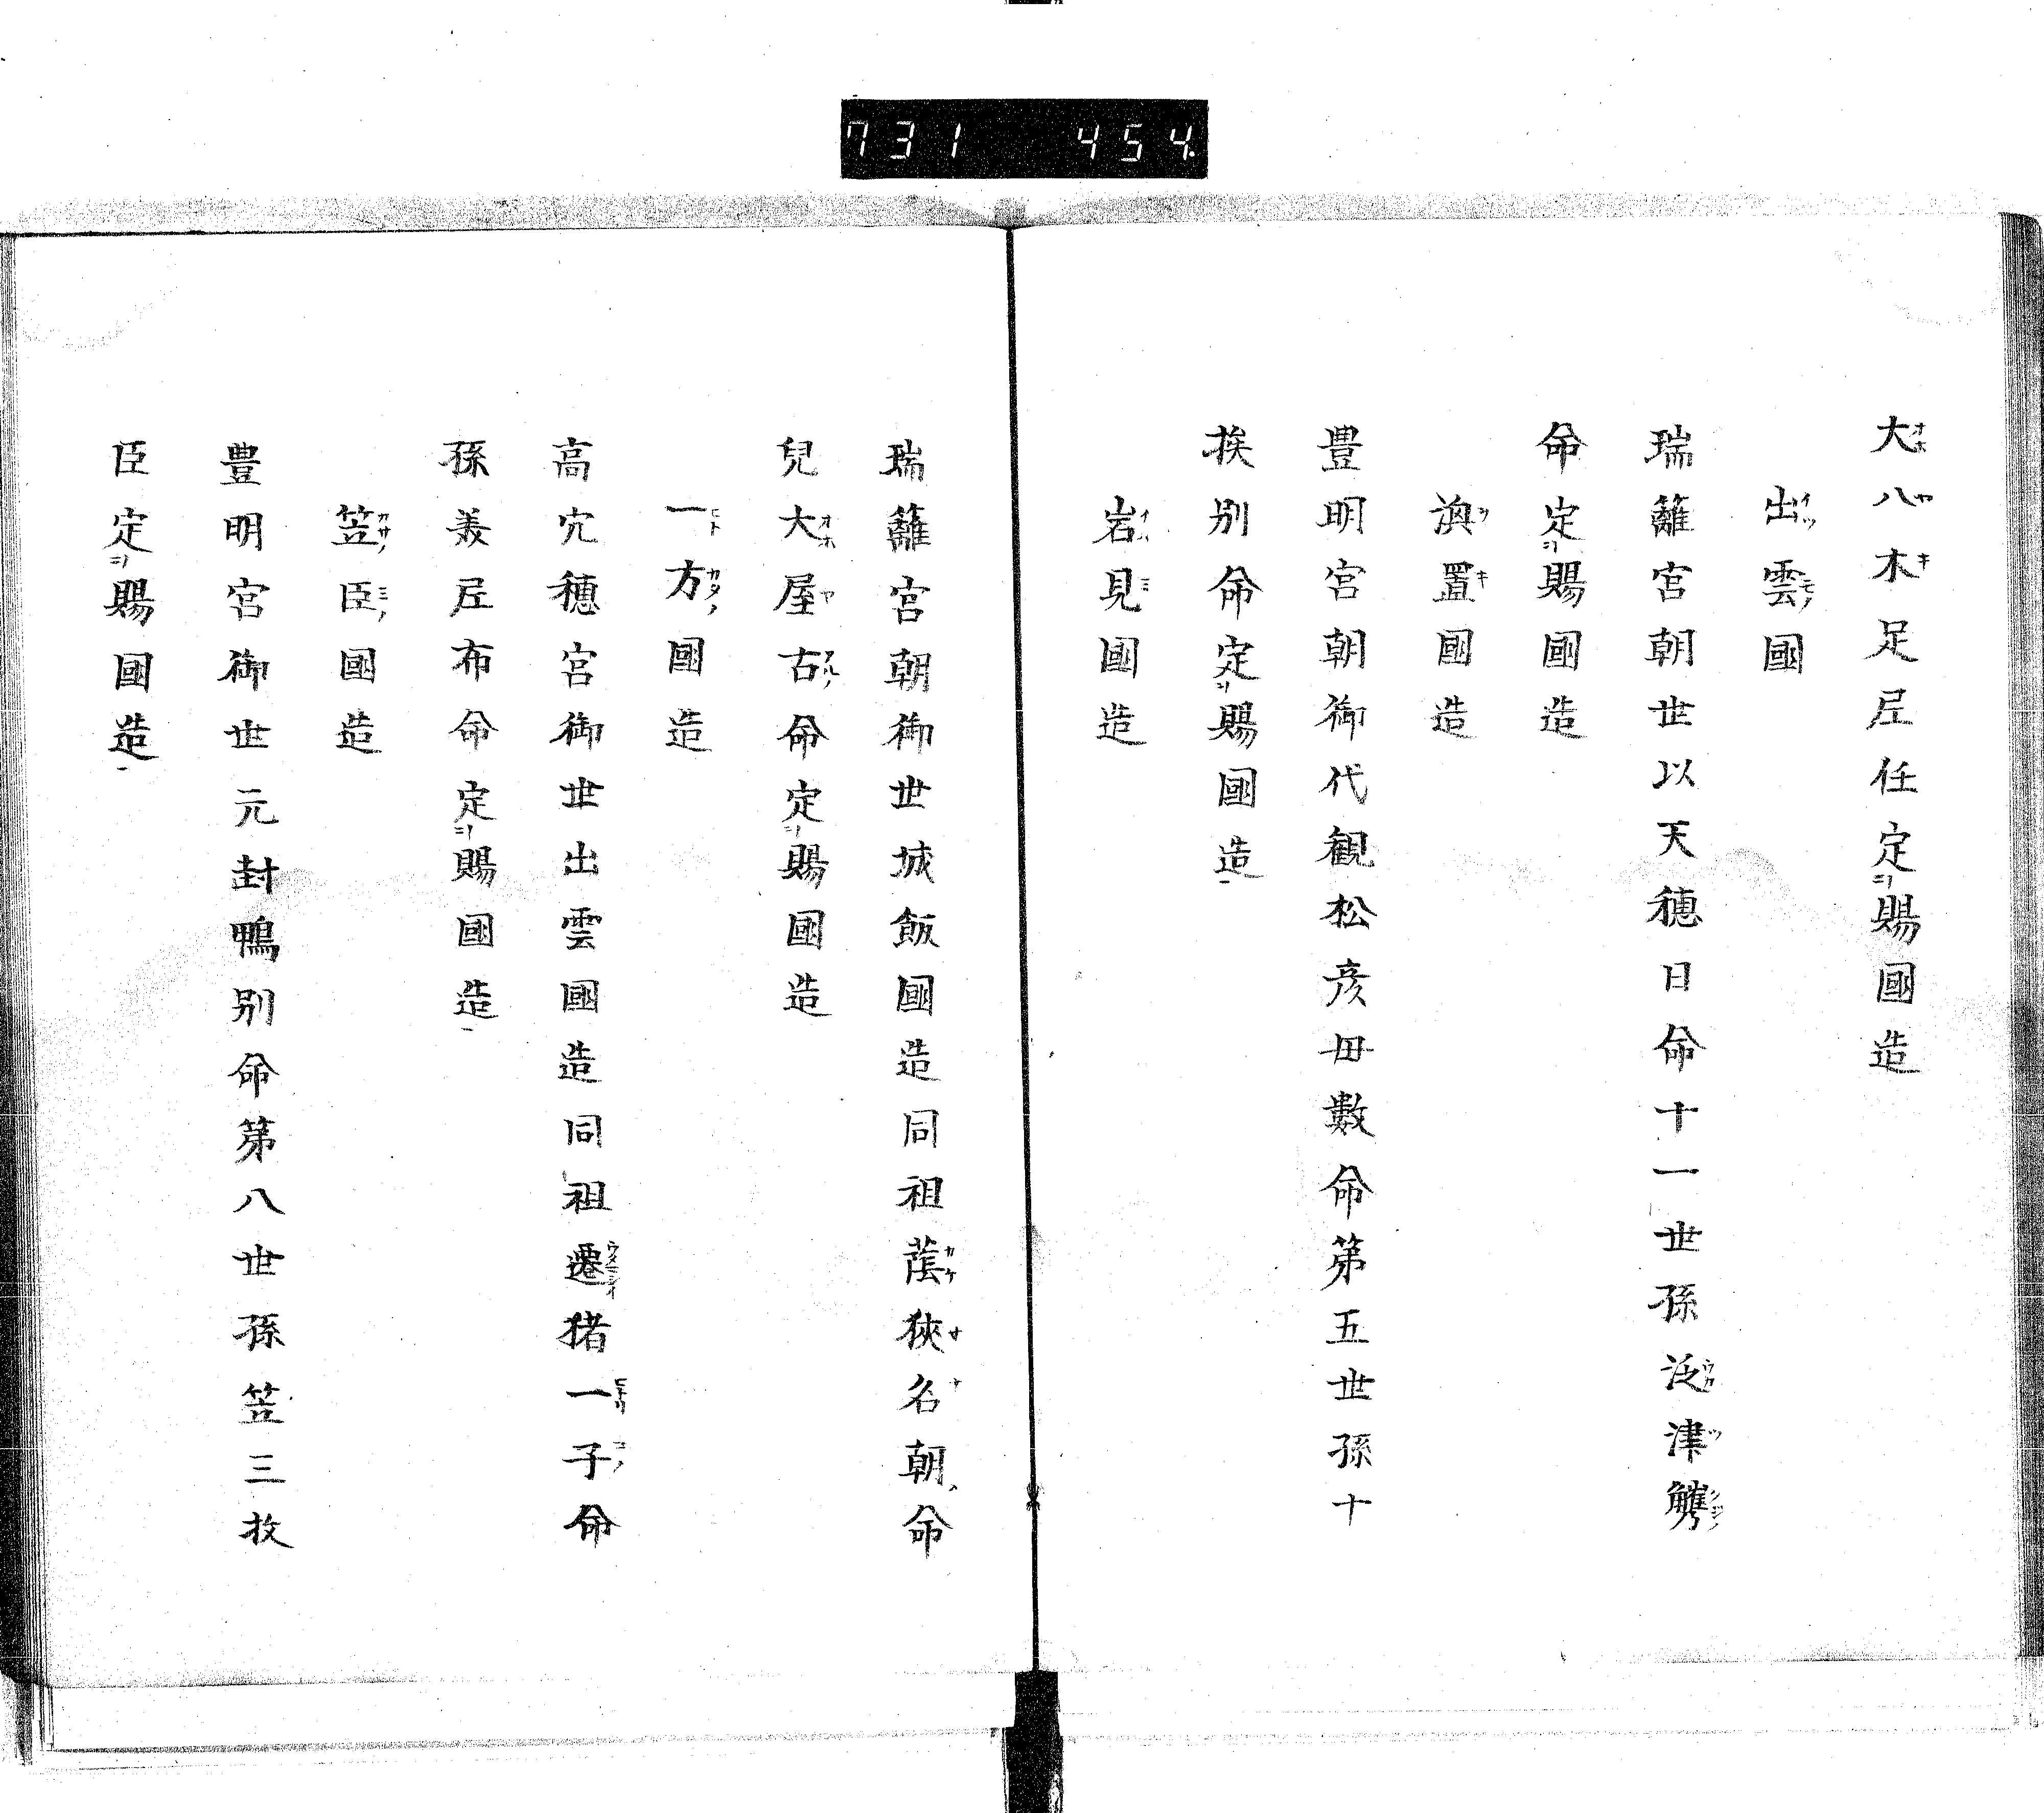 731 454
大八木足尼任定賜國造
出雲國
瑞籬宮朝世以天穂日命十一世孫泛津觹
命定賜國造
澳置國造
豊明宮朝御代観松彦毋數命第五世孫十
挨別命定賜國造
岩見國造
瑞籬宮朝御世城飯國造同祖蔭狹名朝命
兒大屋古命定賜國造
一方國造
高穴穂宮御世出雲國造同祖遷猪一子命
孫羨尼布命定賜國造
笠臣國造
豊明宮御世元封鴨別命第八世孫笠三枚
臣定賜國造